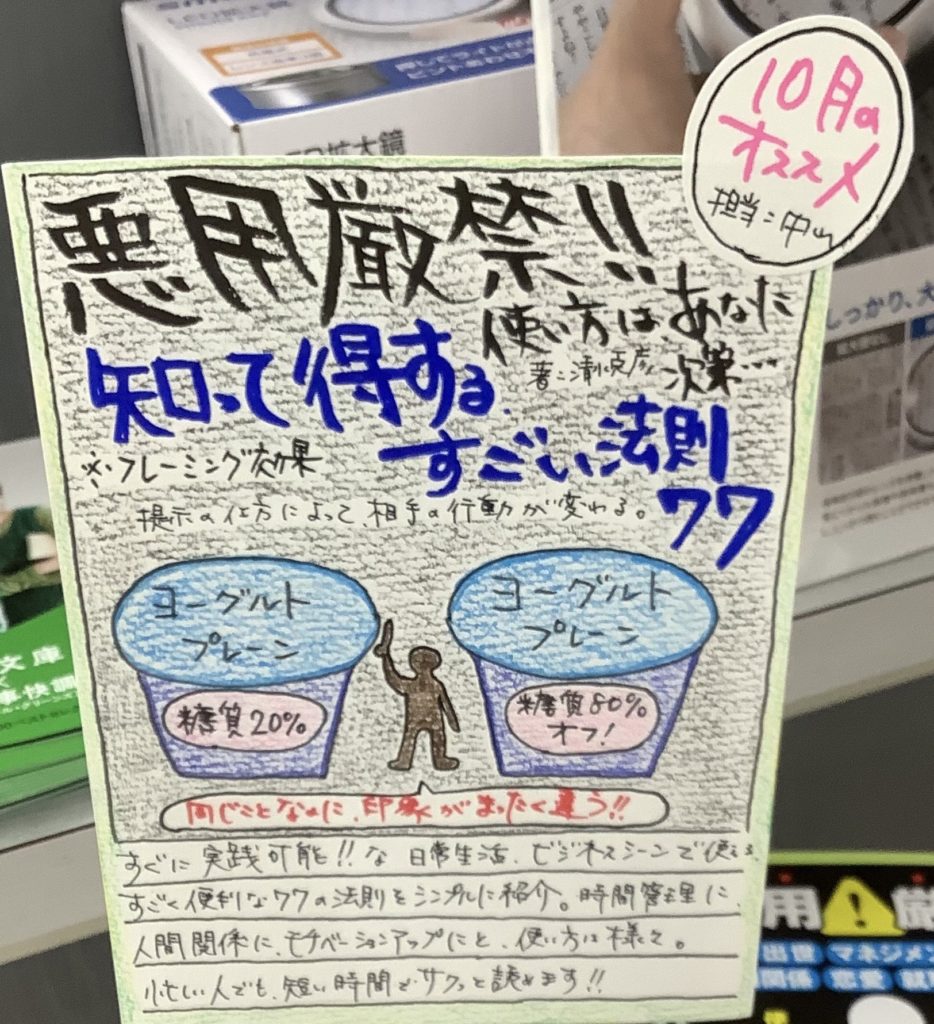 LED拡大鏡
10月の
オススメ
担当:中山
悪用厳禁!!
使い方は、あなた
次第…
知って得する
著:清水克彦
すごい法則
77
※フレーミング効果
提示の仕方によって、相手の行動が変わる。
ヨーグルト
プレーン
糖質20%
ヨーグルト
プレーン
糖質80%
オフ!
同じことなのに、印象がまったく違う!!
すぐに実践可能!!な日常生活、ビジネスシーンで使える
すごく便利な77の法則をシンプルに紹介。時間管理に、
人間関係に、モチベーションアップにと、使い方は様々。
忙しい人でも、短い時間でサクっと読めます!!
しっかり、大
文庫
快調
用 厳
出世 マネジメン
関係 恋愛 就